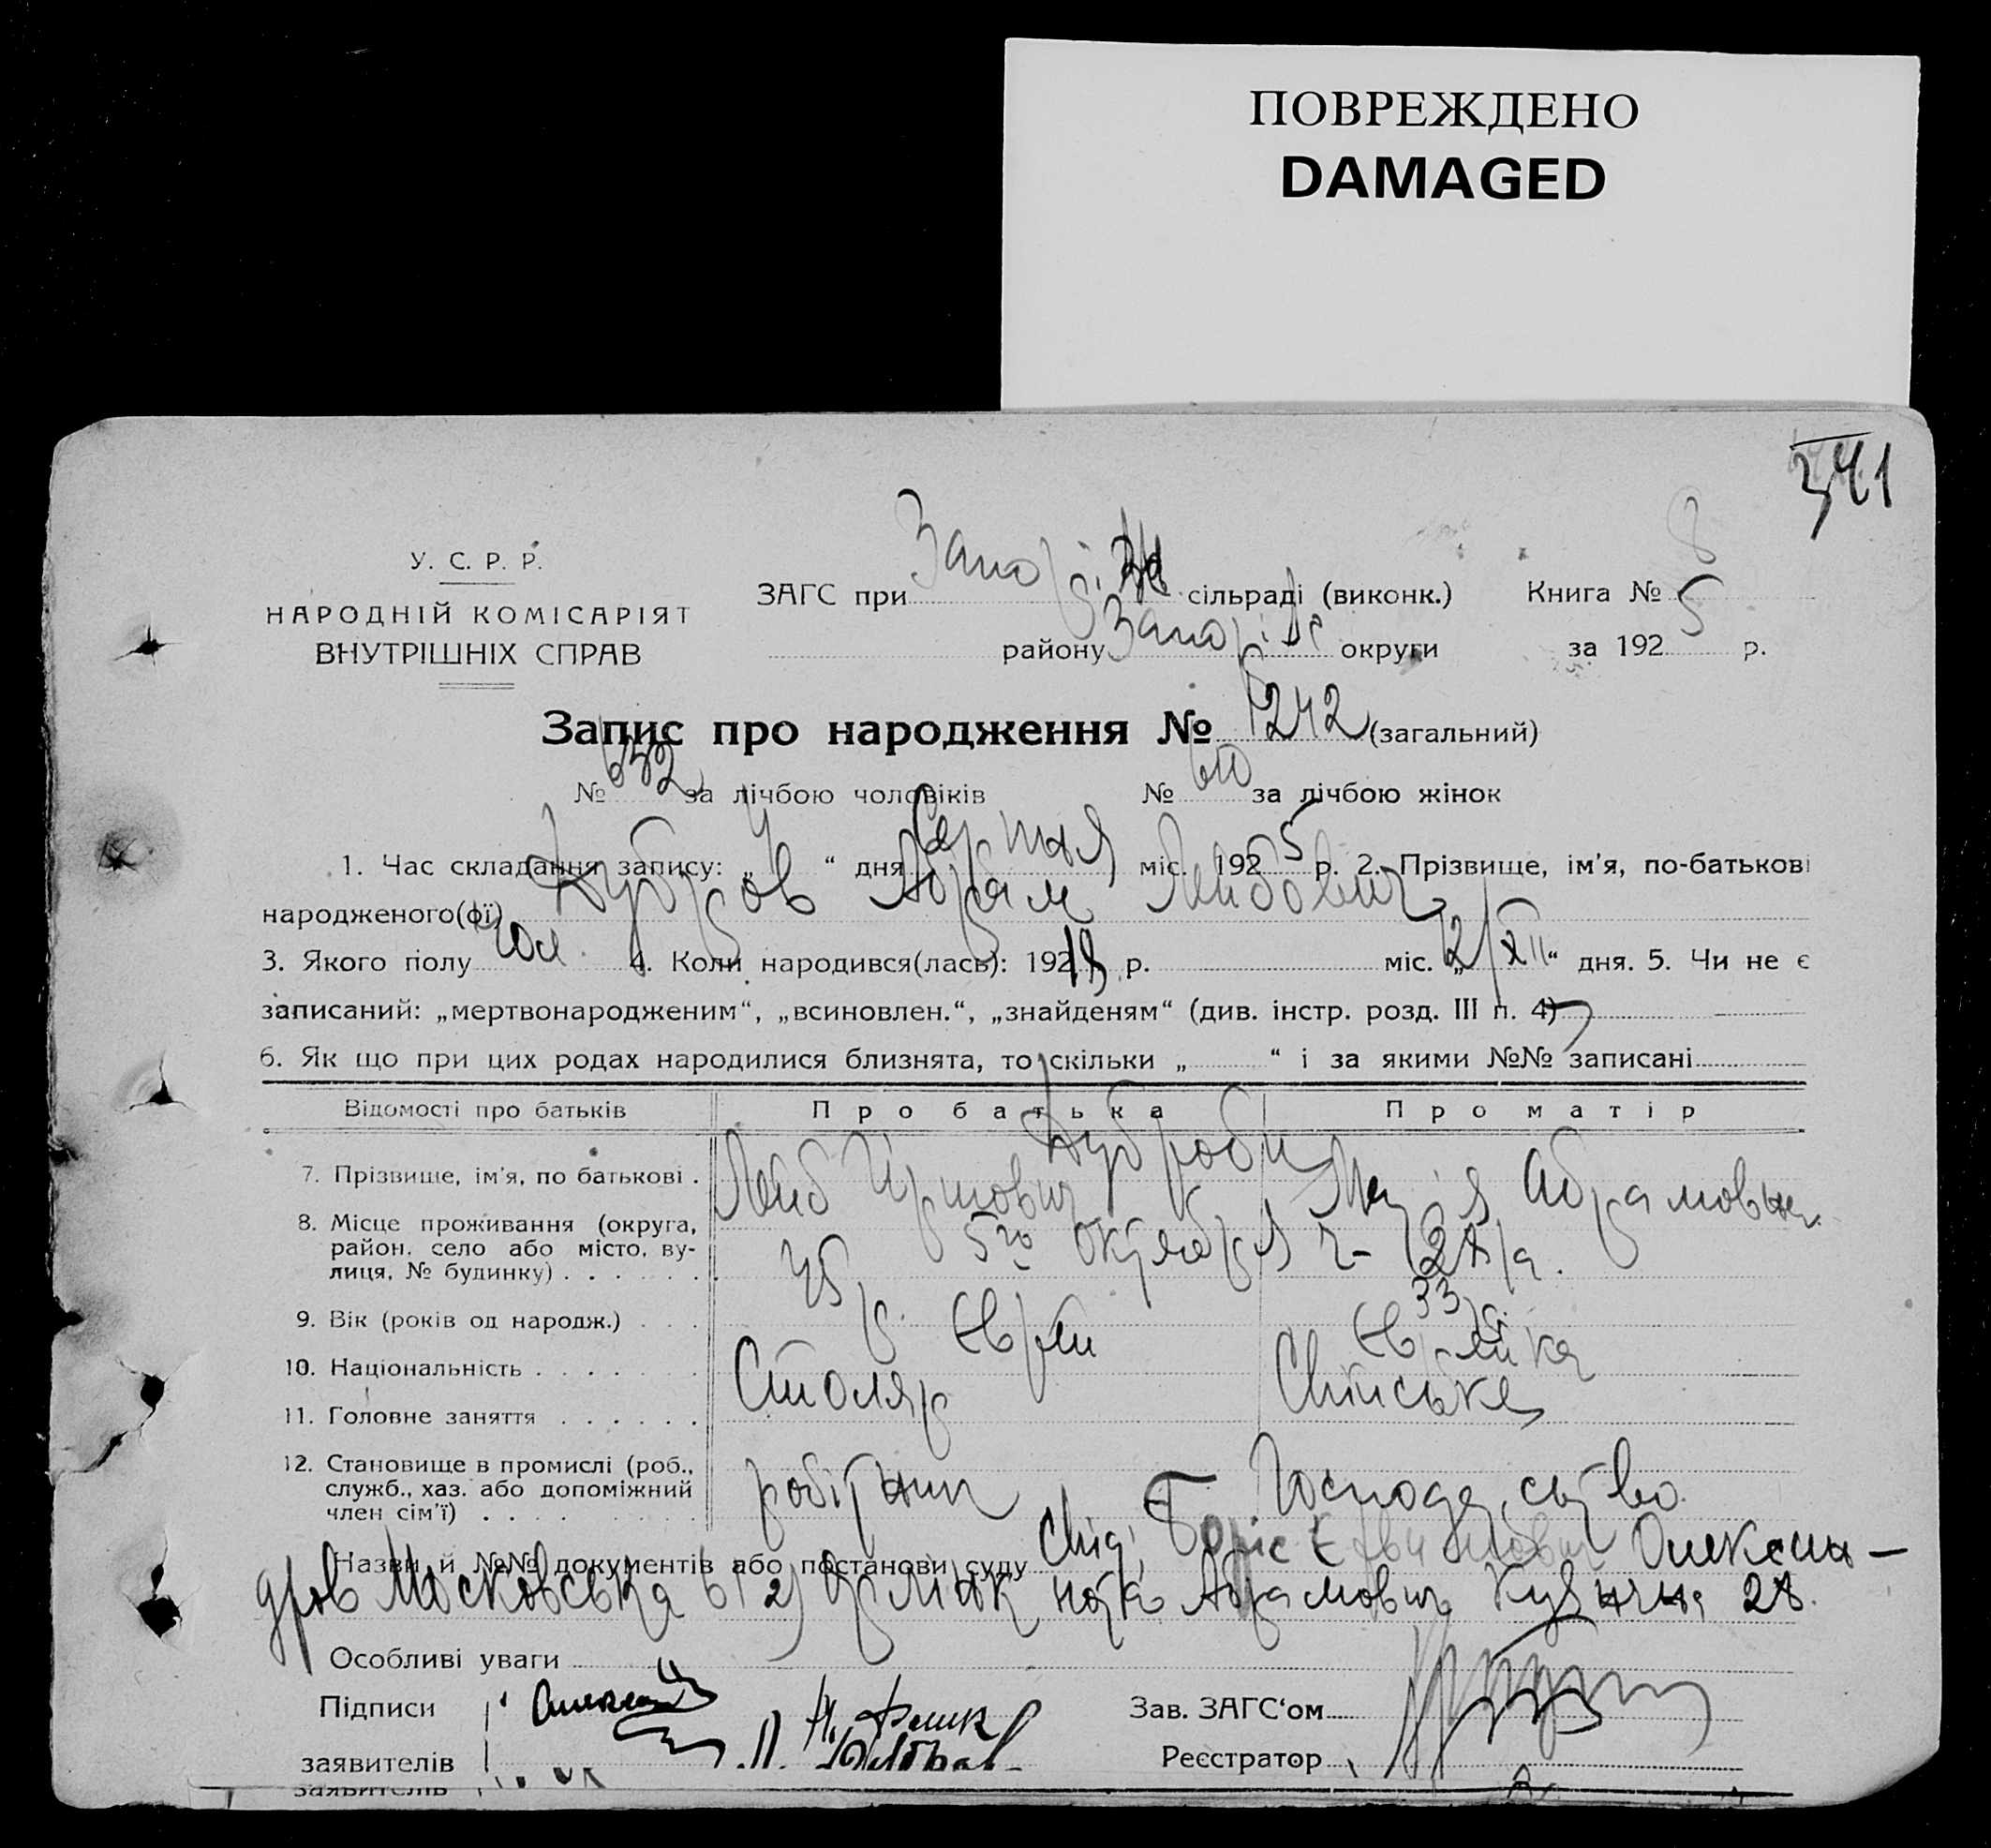 ПОВРЕЖДЕНО
DAMAGED
341
У. С. Р. Р.
НАРОДНІЙ КОМІСАРІЯТ
ВНУТРІШНІХ СПРАВ
ЗАГС при сільраді (виконк.) Книга № 8
району округи за 192 5 р.
Запис про народження № 1242 (загальний)
№ 632 за лічбою чоловіків № 610 за лічбою жінок
1. Час складання запису: „ 4 “ дня Серпня міс. 192 5 р. 2. Прізвище, ім'я, по-батькові
народженого(ої) Дубров Абрам Лейбович
3. Якого полу чол. 4. Коли народився(лась): 192 р. міс. „ 12/XII “ дня. 5. Чи не є
записаний: „мертвонародженим“, „всиновлен.“, „знайденям“ (див. інстр. розд. III п. 4)
6. Як що при цих родах народилися близнята, то скільки „ “ і за якими №№ записані
Відомості про батьків Про батька Про матір
7. Прізвище, ім'я, по батькові . Лейб Абрамовна
8. Місце проживання (округа,
район, село або місто, ву-
лиця, № будинку) . . . . . . 5го Октября
9. Вік (років од народж.) . . . 45 р. 33 р.
10. Національність . . . . . . . Еврей Еврейка
11. Головне заняття . . . . . . Столяр Хатське
12. Становище в промислі (роб.,
служб., хаз. або допоміжний
член сім'ї) . . . . робітник Господарство
Назви й №№ документів або постанови суду Свід. Олексан-
дров Московська 61 2) Абрамович Кузнечна 28.
Особливі уваги
Підписи
заявителів
Зав. ЗАГС'ом
Реєстратор